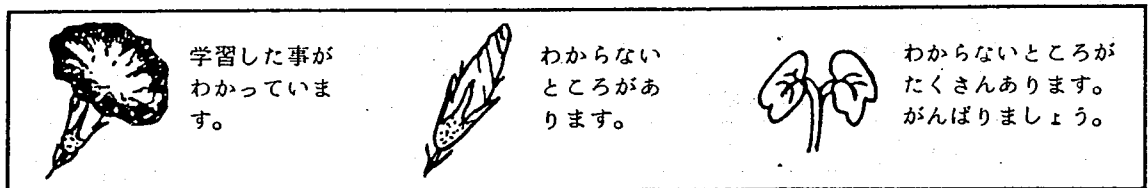 学習した事が
わかっていま
す。
わからない
ところがあ
ります。
わからないところが
たくさんあります。
がんばりましょう。